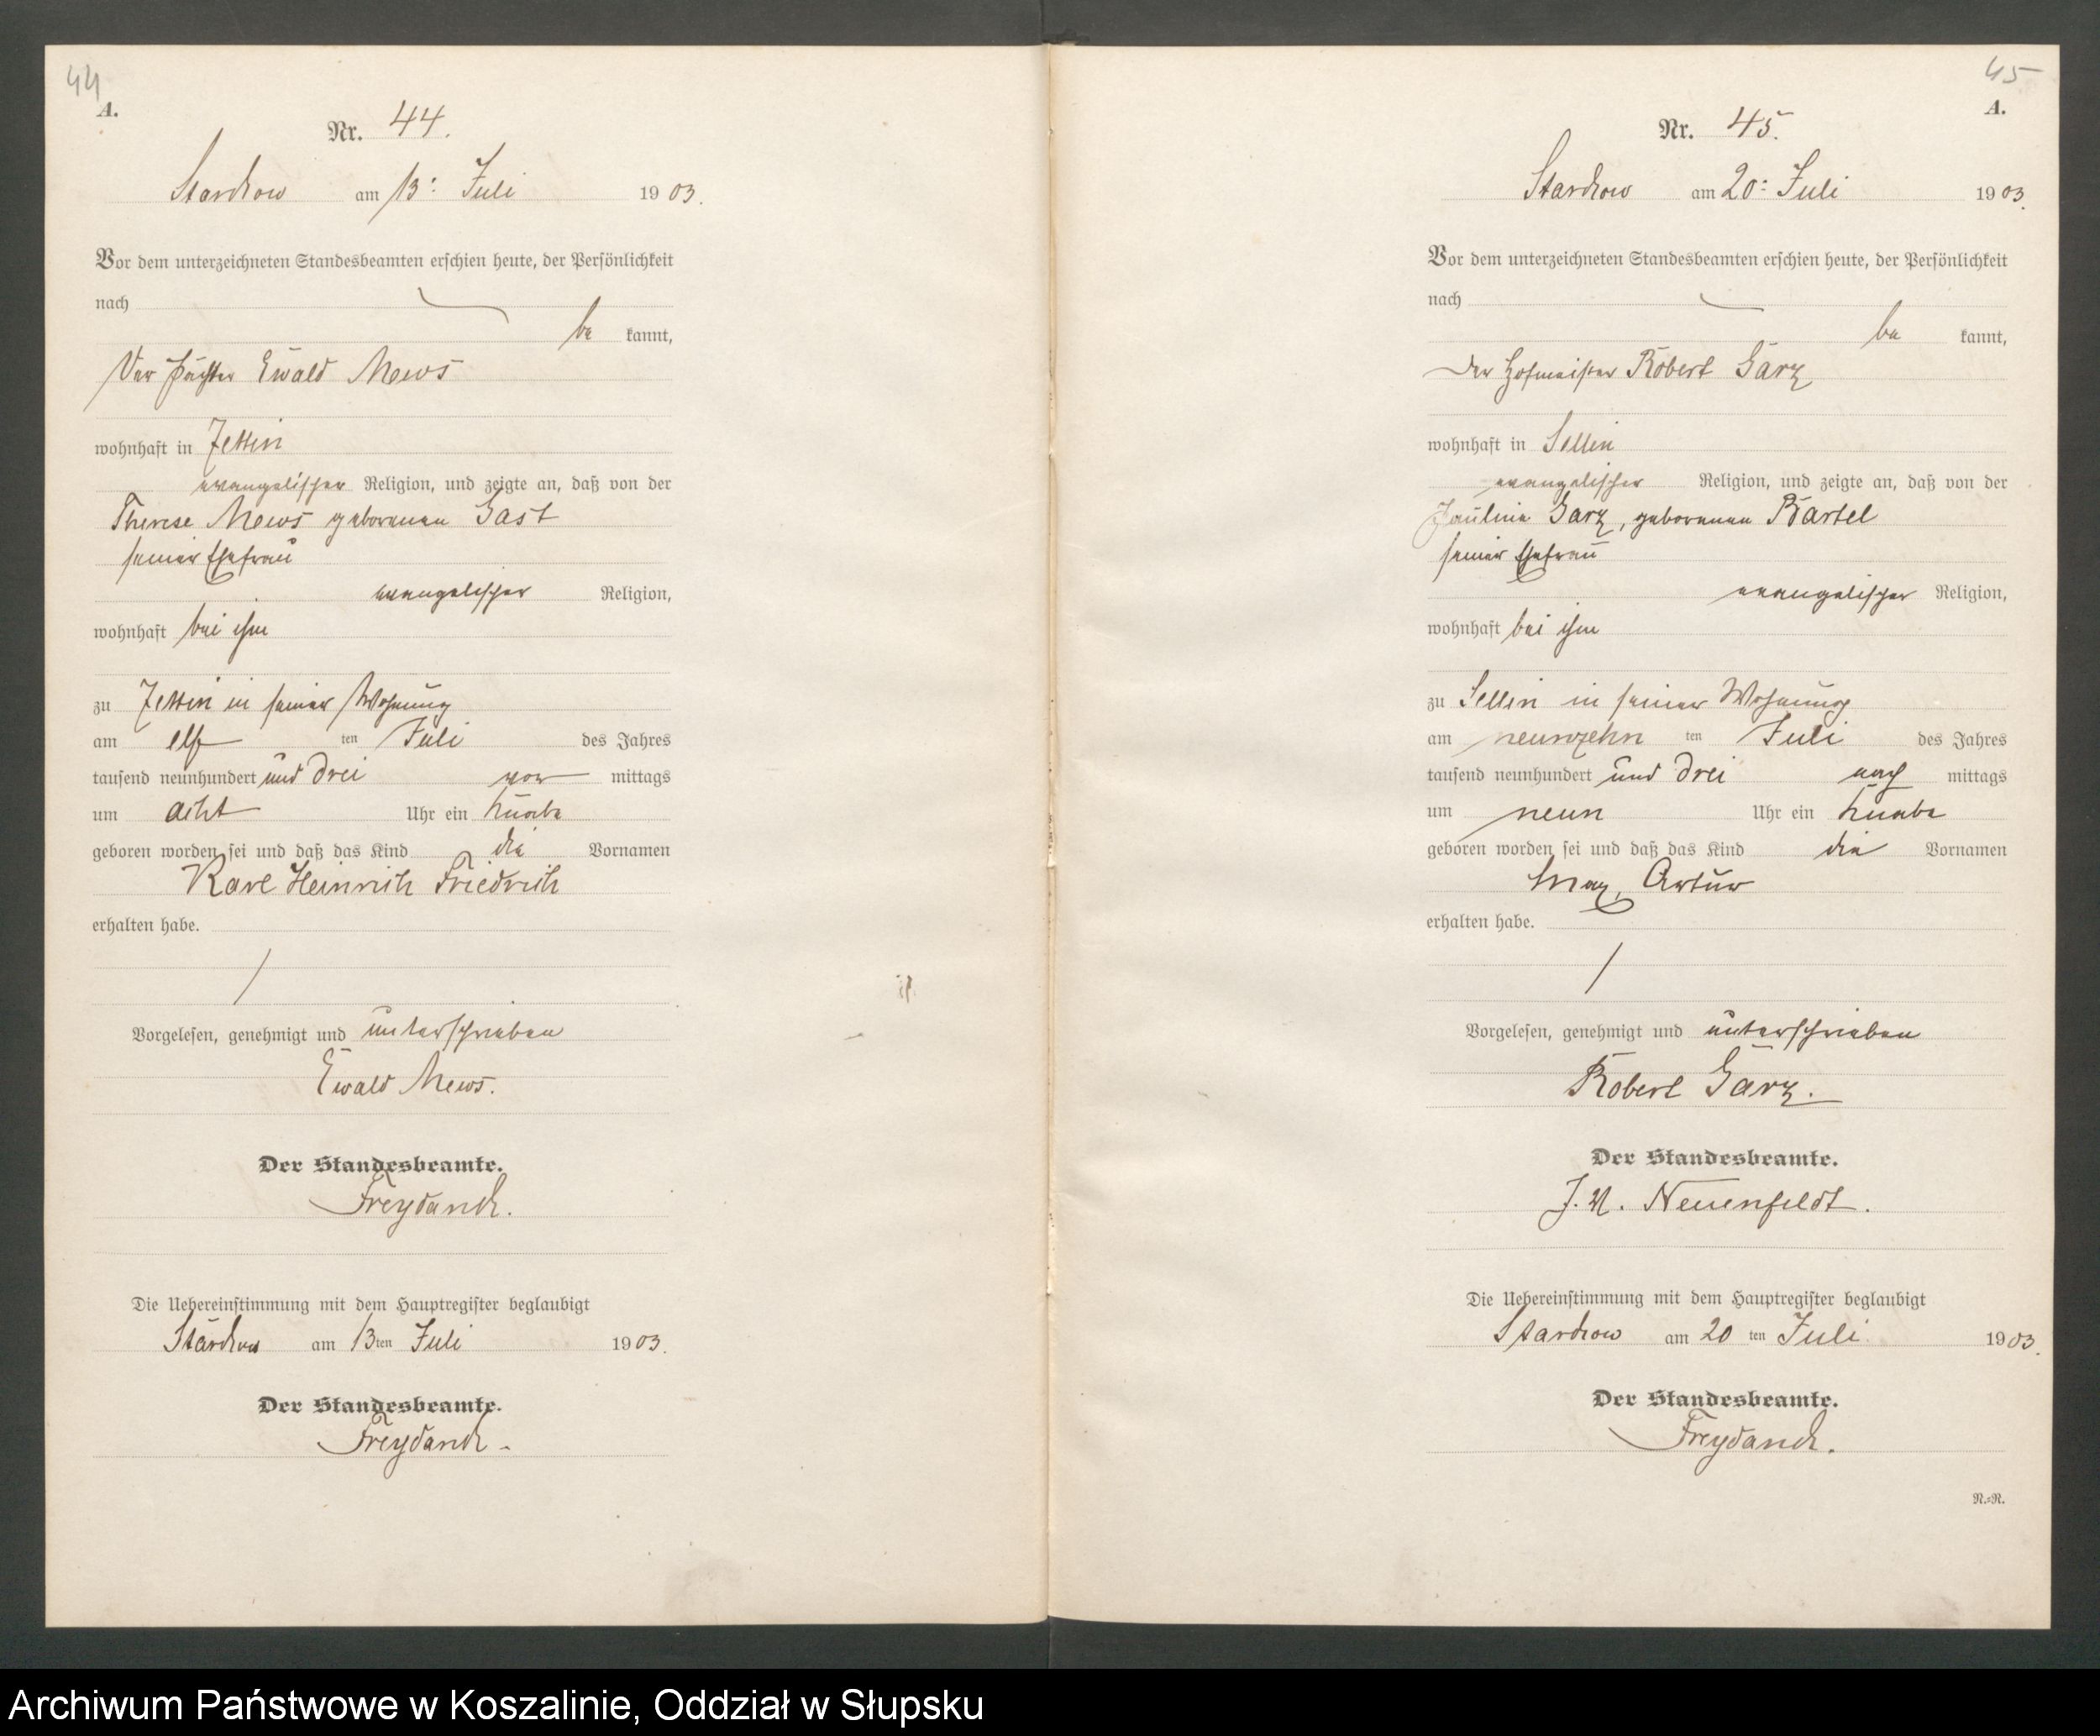 44
A.
Nr. 44.
Starckow am 13: Juli 1903.
Vor dem unterzeichneten Standesbeamten erschien heute, der Persönlichkeit
nach
be kannt,
Der Pächter Ewald Mews
wohnhaft in Zettin
evangelischer Religion, und zeigte an, daß von der
Therese Mews geborenen Gast
seiner Ehefrau
evangelischer Religion,
wohnhaft bei ihm
zu Zettin in seiner Wohnung
am elf ten Juli des Jahres
tausend neunhundert und drei vor mittags
um acht Uhr ein Knabe
geboren worden sei und daß das Kind die Vornamen
Karl Heinrich Friedrich
erhalten habe.
Vorgelesen, genehmigt und unterschrieben
Ewald Mews.
Der Standesbeamte.
Freydanck.
Die Uebereinstimmung mit dem Hauptregister beglaubigt
Starckow am 13ten Juli 1903.
Der Standesbeamte.
Freydanck.
45
A.
Nr. 45.
Starckow am 20: Juli 1903.
Vor dem unterzeichneten Standesbeamten erschien heute, der Persönlichkeit
nach
be kannt,
Der Hofmeister Robert Garz
wohnhaft in Sellin
evangelischer Religion, und zeigte an, daß von der
Pauline Garz, geborenen Bartel
seiner Ehefrau
evangelischer Religion,
wohnhaft bei ihm
zu Sellin in seiner Wohnung
am neunzehn ten Juli des Jahres
tausend neunhundert und drei nach mittags
um neun Uhr ein Knabe
geboren worden sei und daß das Kind die Vornamen
Max, Artur
erhalten habe.
Vorgelesen, genehmigt und unterschrieben
Robert Garz.
Der Standesbeamte.
J. V. Neuenfeldt.
Die Uebereinstimmung mit dem Hauptregister beglaubigt
Starckow am 20 ten Juli 1903.
Der Standesbeamte.
Freydanck.
R.=R.
Archiwum Państwowe w Koszalinie, Oddział w Słupsku